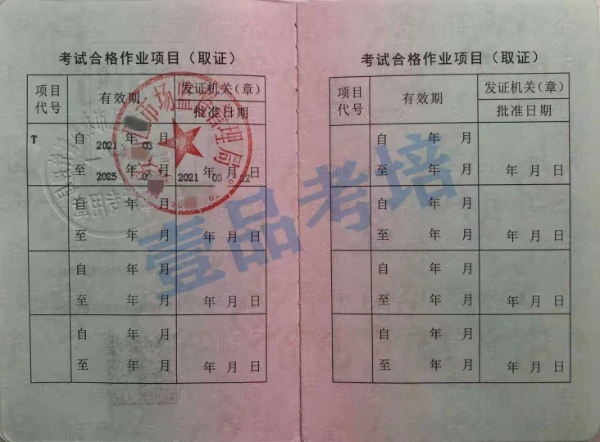 考试合格作业项目（取证）
项目代号 有效期 发证机关（章）
批准日期
T 自 2021 年 03 月
至 2025 年 月 2021 年 03 月 22 日
自 年 月
至 年 月 年 月 日
自 年 月
至 年 月 年 月 日
自 年 月
至 年 月 年 月 日
市场监 管理局
壹品考培
考试合格作业项目（取证）
项目代号 有效期 发证机关（章）
批准日期
自 年 月
至 年 月 年 月 日
自 年 月
至 年 月 年 月 日
自 年 月
至 年 月 年 月 日
自 年 月
至 年 月 年 月 日